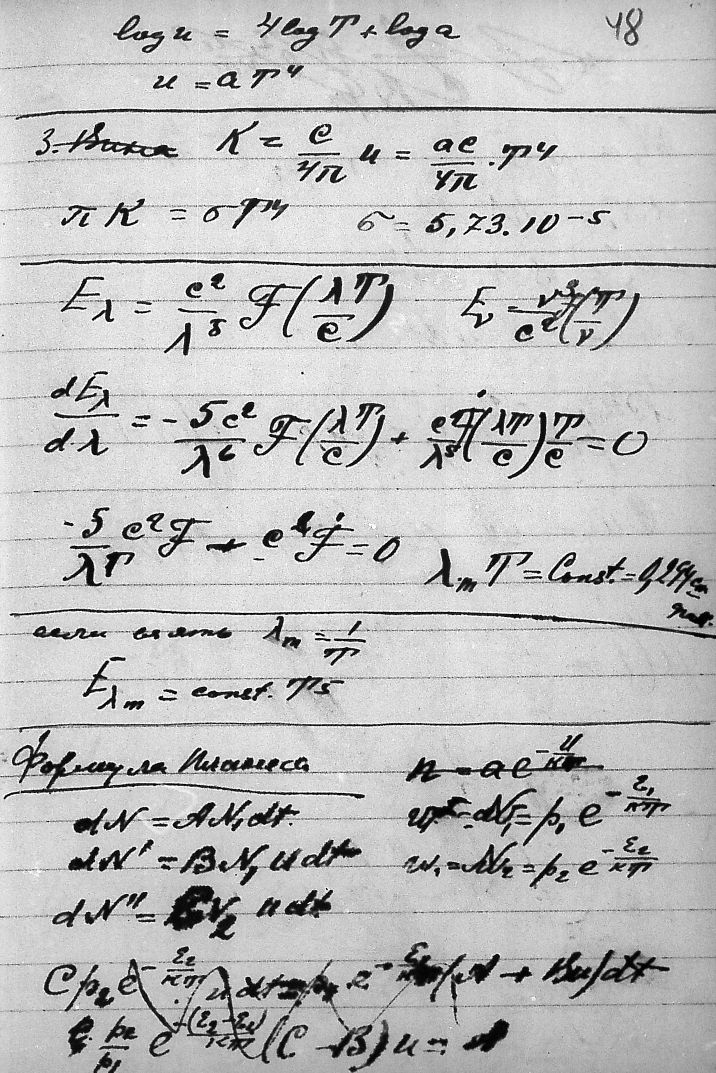 log u = 4 log T + log a 48
u = a T⁴
3. K = c/4π u = ac/4π · T⁴
πK = σT⁴ σ = 5,73.10⁻⁵
E_λ = c²/λ⁵ F(λT/c) E_ν = ν³/c² F(T/ν)
dE_λ/dλ = -5c²/λ⁶ F(λT/c) + c²/λ⁵ Ḟ(λT/c) T/c = 0
-5/λT c² F + c² Ḟ = 0
λ_m T = Const. = 0,294 cm
если взять λ_m = 1/T
E_λm = const. T⁵
Формула Планка n = a e^(-u/кT)
dN = AN₁dt. = N₁ = p₁ e^(-ε₁/кT)
dN' = BN₁ u dt w₁ = N₂ = p₂ e^(-ε₂/кT)
dN'' = CN₂ u dt
Cp₂ e^(-ε₂/кT) u dt = p₁ e^(-ε₁/кT) (A + Bu)dt
p₂/p₁ e^(-(ε₂-ε₁)/кT) (C - B) u = A